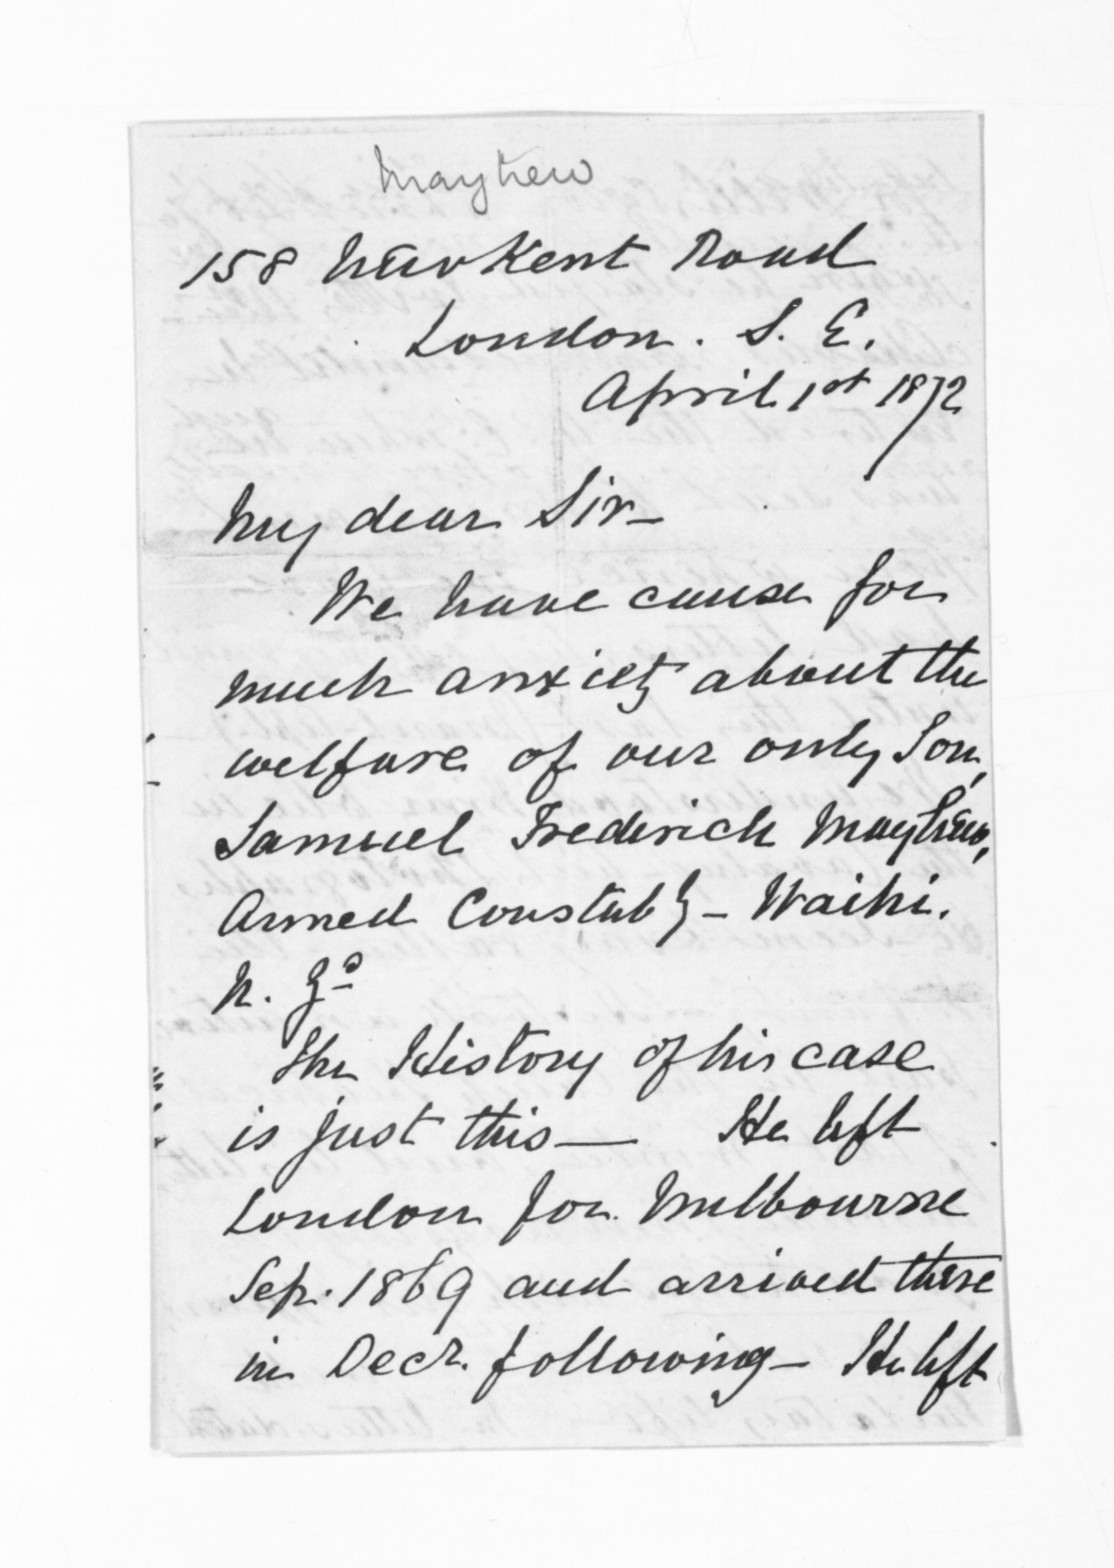 Mayhew
158 New Kent Road
London. S. E.
April 1st 1872
My dear Sir—
We have cause for
much anxiety about the
welfare of our only Son,
Samuel Frederick Mayhew,
Armed Constaby — Waihi.
N. Zd
The History of his case
is just this — He left
London for Melbourne
Sep. 1869 and arrived there
in Decr. following — He left